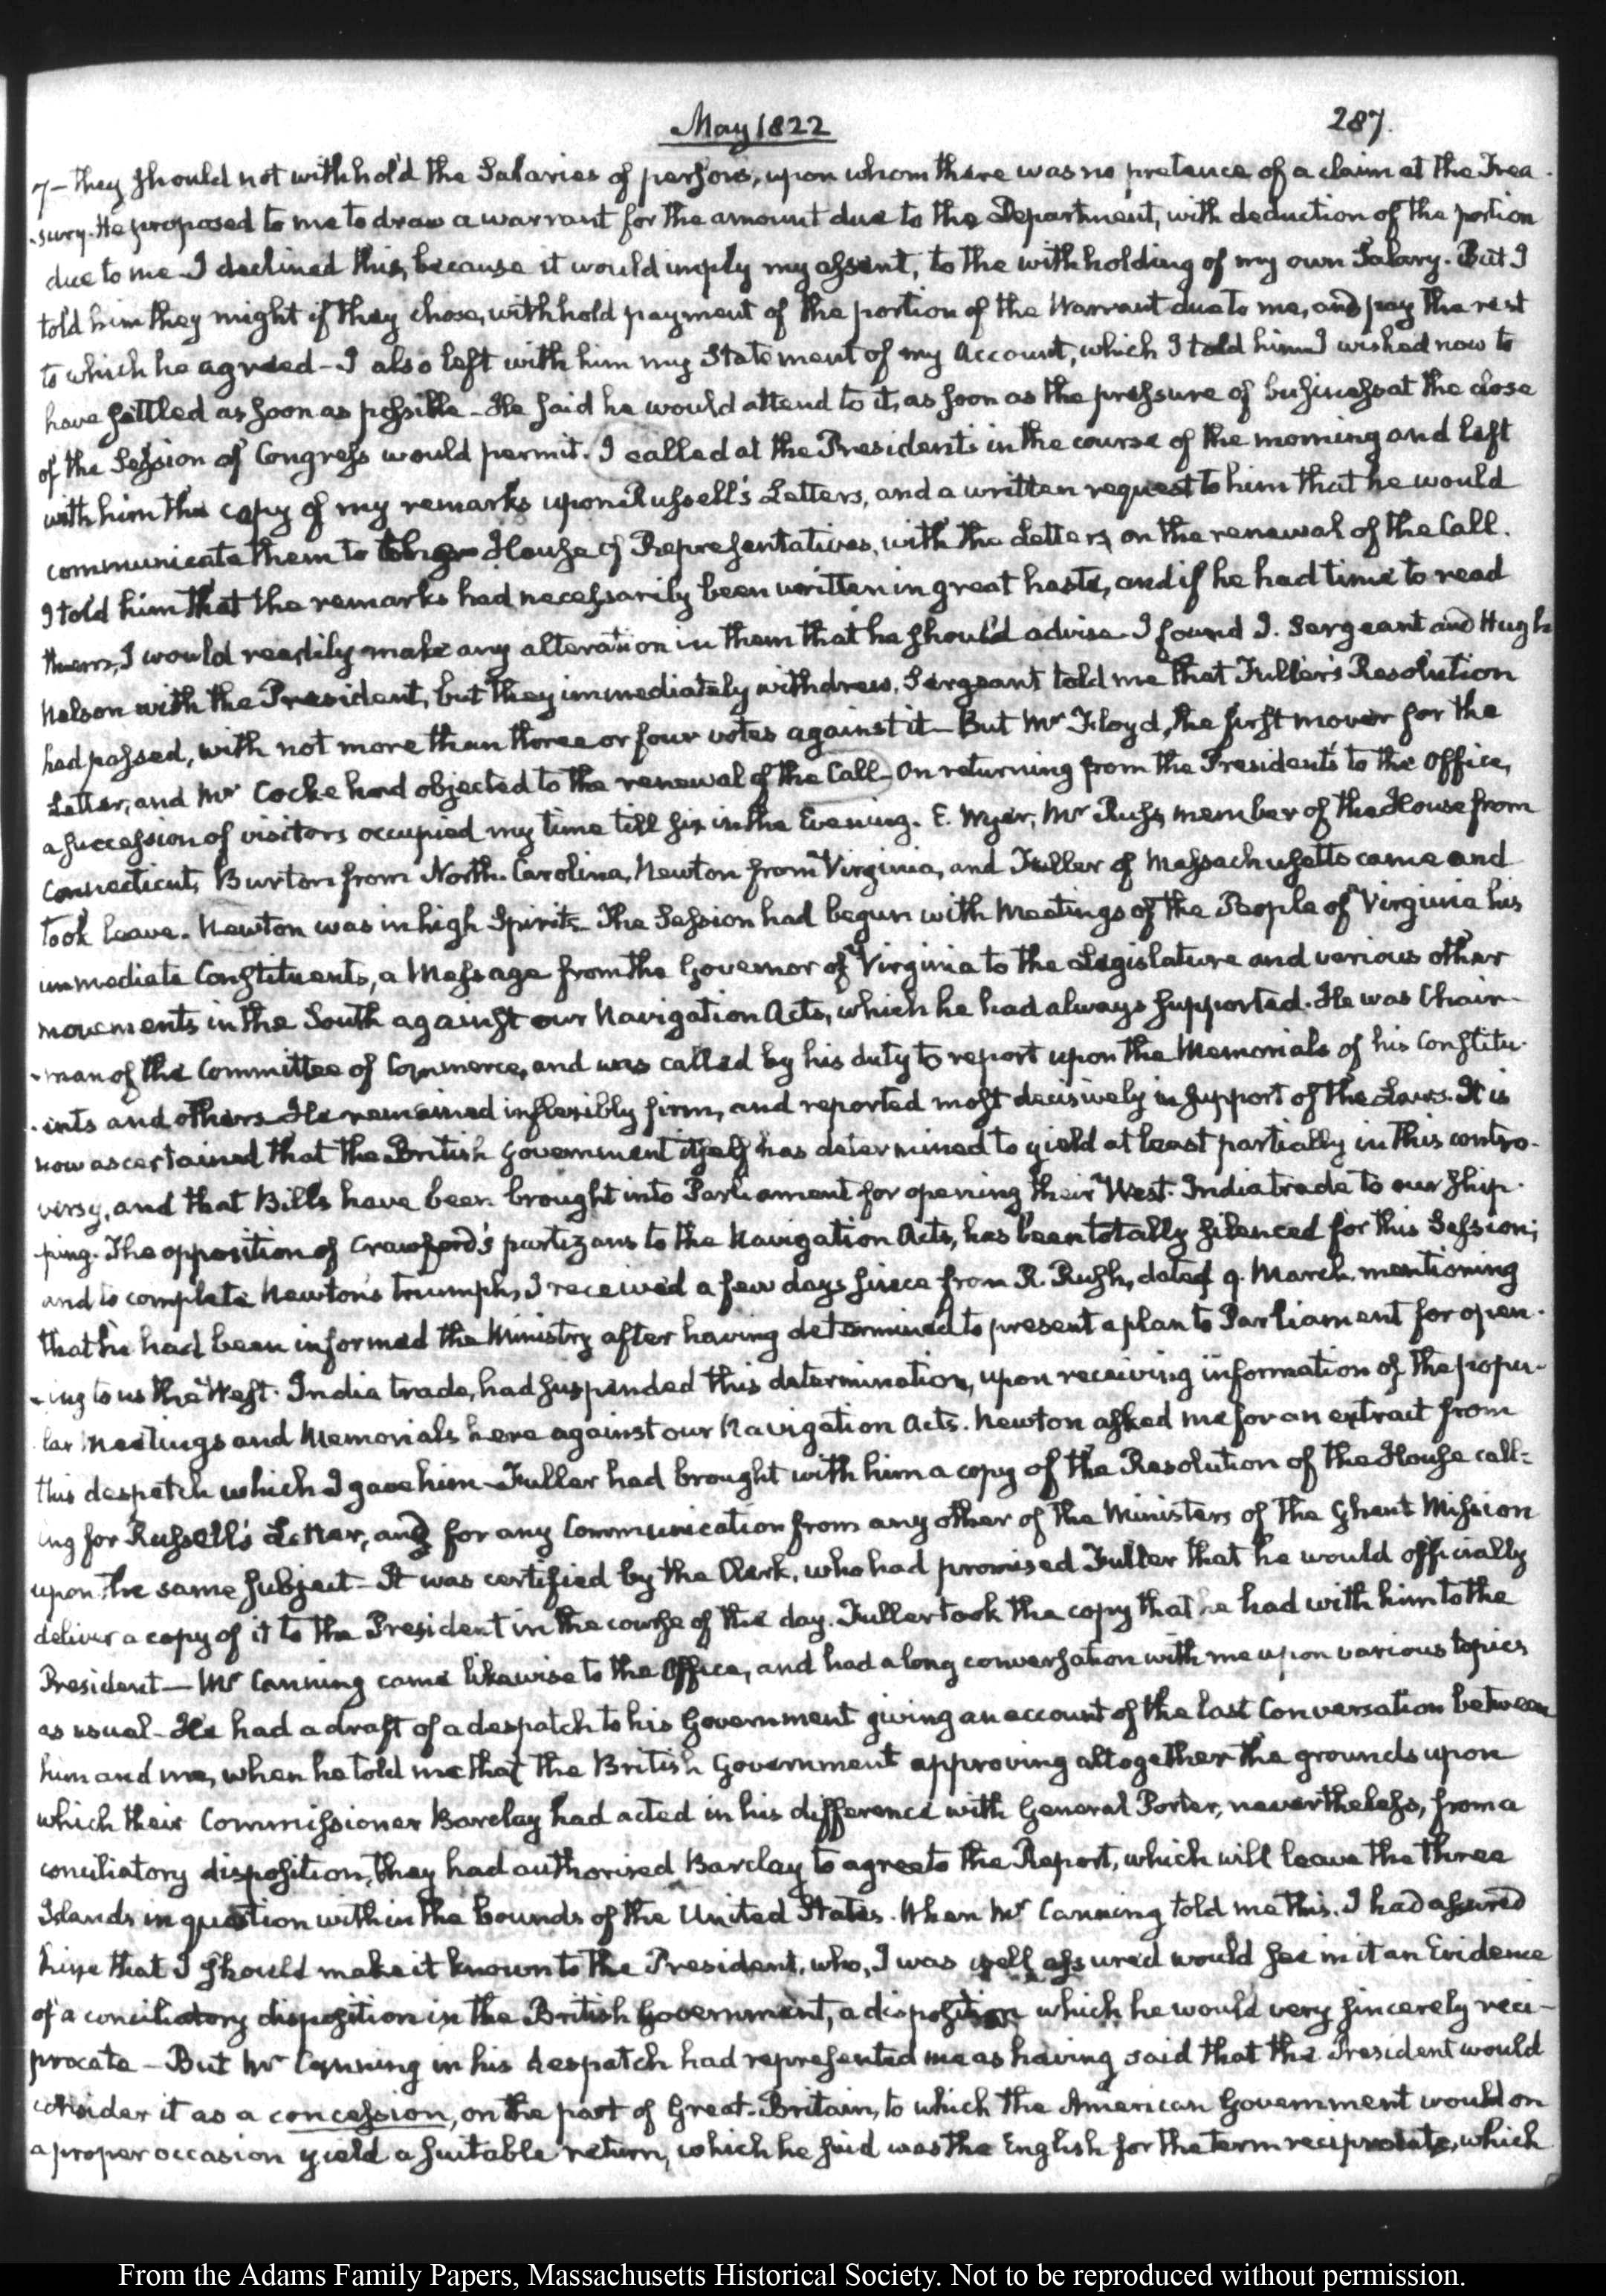 May 1822
287.
7 — they should not withhold the Salaries of persons, upon whom there was no pretence of a claim at the Trea-
-sury. He proposed to me to draw a warrant for the amount due to the Department, with deduction of the portion
due to me. I declined this, because it would imply my assent, to the withholding of my own Salary. But I
told him they might if they chose, withhold payment of the portion of the Warrant due to me, and pay the rest
to which he agreed — I also left with him my Statement of my Account, which I told him I wished now to
have settled as soon as possible — He said he would attend to it, as soon as the pressure of business at the close
of the Session of Congress would permit. I called at the President's in the course of the morning and left
with him the copy of my remarks upon Russell's Letters, and a written request to him that he would
communicate them to the House of Representatives, with the Letters, on the renewal of the Call.
I told him that the remarks had necessarily been written in great haste, and if he had time to read
them, I would readily make any alteration in them that he should advise. I found J. Sergeant and Hugh
Nelson with the President, but they immediately withdrew. Sergeant told me that Fuller's Resolution
had passed, with not more than three or four votes against it — But Mr Floyd, the first mover for the
Letter, and Mr Cocke had objected to the renewal of the Call — On returning from the President's to the Office,
a succession of visitors occupied my time till six in the Evening. E. Wyer, Mr Russ, member of the House from
Connecticut, Burton from North-Carolina, Newton from Virginia, and Fuller of Massachusetts came and
took leave. Newton was in high Spirits. The Session had begun with Meetings of the People of Virginia his
immediate Constituents, a Message from the Governor of Virginia to the Legislature and various other
movements in the South against our Navigation Acts, which he had always supported. He was Chair-
-man of the Committee of Commerce, and was called by his duty to report upon the Memorials of his Constitu-
-ents and others. He remained inflexibly firm, and reported most decisively in support of the Laws. It is
now ascertained that the British Government itself has determined to yield at least partially in this contro-
versy, and that Bills have been brought into Parliament for opening their West-India trade to our ship-
ping. The opposition of Crawford's partizans to the Navigation Acts, has been totally silenced for this Session;
and to complete Newton's triumph, I received a few days since from R. Rush, dated 9. March, mentioning
that he had been informed the Ministry after having determined to present a plan to Parliament for open-
-ing to us the West-India trade, had suspended this determination, upon receiving information of the popu-
lar Meetings and Memorials here against our Navigation Acts. Newton asked me for an extract from
this despatch which I gave him — Fuller had brought with him a copy of the Resolution of the House call-
ing for Russell's Letter, and for any Communication from any other of the Ministers of the Ghent Mission
upon the same subject — It was certified by the Clerk, who had promised Fuller that he would officially
deliver a copy of it to the President in the course of the day. Fuller took the copy that he had with him to the
President — Mr Canning came likewise to the Office, and had a long conversation with me upon various topics
as usual — He had a draft of a despatch to his Government giving an account of the last Conversation between
him and me, when he told me that the British Government approving altogether the grounds upon
which their Commissioner Barclay had acted in his difference with General Porter, nevertheless, from a
conciliatory disposition, they had authorised Barclay to agree to the Report, which will leave the three
Islands in question within the bounds of the United States. When Mr Canning told me this, I had assured
him that I should make it known to the President, who, I was well assured would see in it an Evidence
of a conciliatory disposition in the British Government, a disposition which he would very sincerely reci-
procate — But Mr Canning in his despatch had represented me as having said that the President would
consider it as a concession, on the part of Great-Britain, to which the American Government would on
a proper occasion yield a suitable return, which he said was the English for the term reciprocate, which
From the Adams Family Papers, Massachusetts Historical Society. Not to be reproduced without permission.